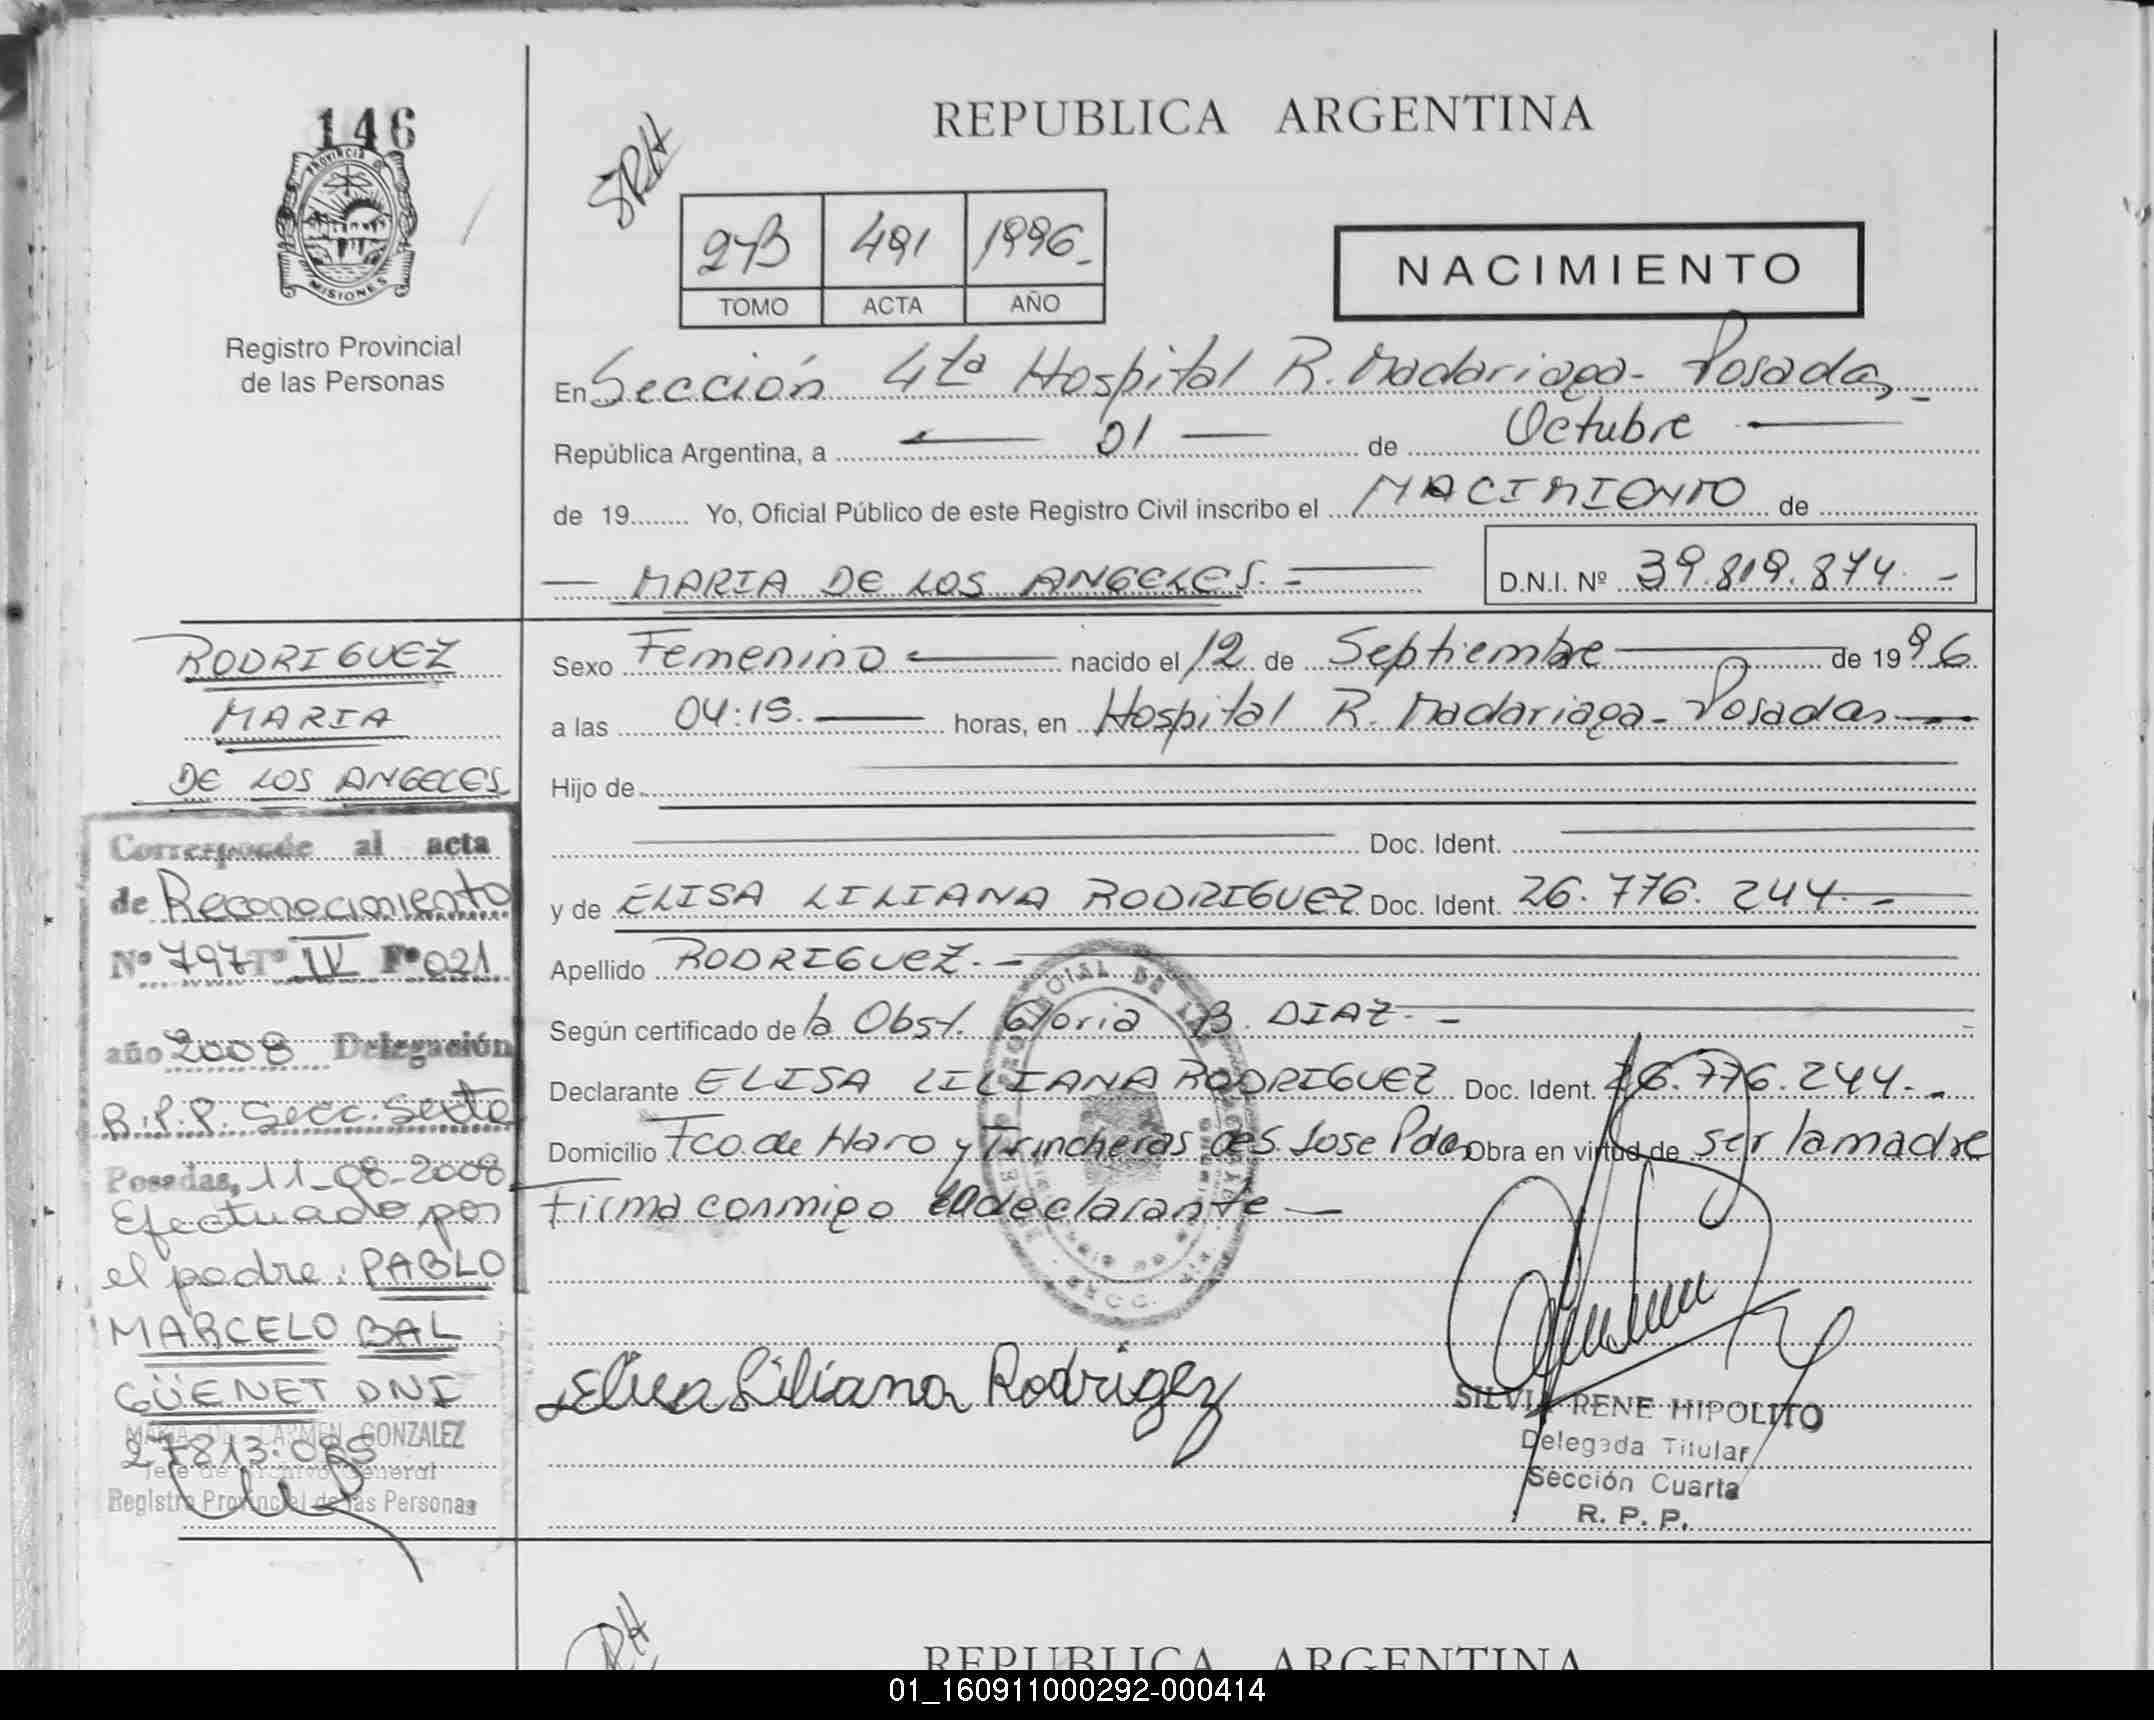 146
PROVINCIA D
MISIONES
Registro Provincial
de las Personas
SRH
REPUBLICA ARGENTINA
2B 491 1996
TOMO ACTA AÑO
NACIMIENTO
En Sección 4ta Hospital R. Madariaga - Posadas
República Argentina, a 01 de Octubre
de 19 Yo, Oficial Público de este Registro Civil inscribo el NACIMIENTO de
MARIA DE LOS ANGELES.
D.N.I. Nº 39.819.874
RODRIGUEZ
MARIA
DE LOS ANGELES
Sexo Femenino nacido el 12 de Septiembre de 1996
a las 04:15. horas, en Hospital R. Madariaga - Posadas
Hijo de
Doc. Ident.
y de ELISA LILIANA RODRIGUEZ Doc. Ident. 26.776.244
Apellido RODRIGUEZ
Según certificado de la Obst. Gloria B. DIAZ
Declarante ELISA LILIANA RODRIGUEZ Doc. Ident. 26.776.244
Domicilio Fco. de Haro y Trincheras de S. Jose Pdas Obra en virtud de ser la madre
Firma conmigo la declarante
Elisa Liliana Rodrigez
SILVIA RENE HIPOLITO
Delegada Titular
Sección Cuarta
R. P. P.
Corresponde al acta
de Reconocimiento
Nº 797 Tº IV Fº 021
año 2008 Delegación
R.P.P. Secc. Sexta
Posadas, 11-08-2008
Efectuado por
el padre: PABLO
MARCELO BAL
GÜENET DNI
27813.085
MARIA DEL CARMEN GONZALEZ
Jefe de Archivo General
Registro Provincial de las Personas
RH
REPUBLICA ARGENTINA
01_160911000292-000414